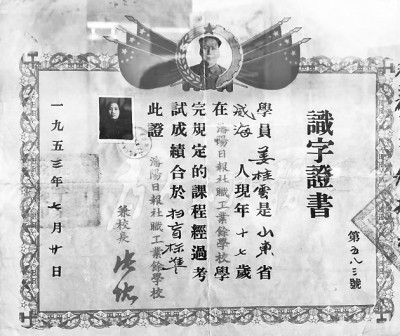 識字證書
第五八三號
學員姜桂雲是山東省
威海人現年十七歲
在瀋陽日報社職工業餘學校學
完規定的課程經過考
試成績合於扫盲标准
此證
瀋陽日報社職工業餘學校
兼校長
一九五三年七月廿日